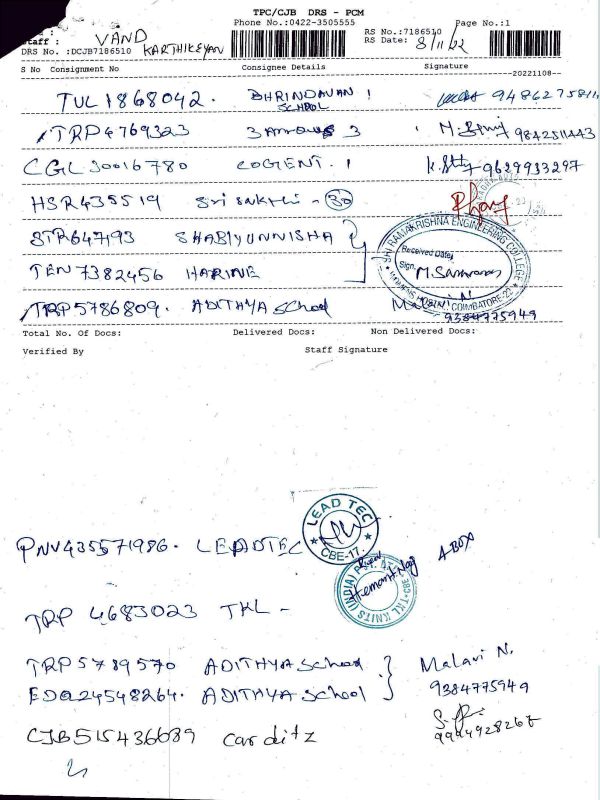 TPC/CJB DRS - PCM
Phone No.:0422-3505555 Page No.:1
RS No.:7186510
Staff : VAND KARTHIKEYAN
RS Date: 8/11/22
DRS No. :DCJB7186510
S No Consignment No Consignee Details Signature
20221108
TUL1868042. BHRINDAVAN 1
SCHOOL
9486275811
TRP4769323 3 Arrows 3 9842511443
CGL30016780 COGENT. 1 9629933297
HSR435519 Sri Sakthi - 30
STR647193 SHABIYUNNISHA
SRI RAMAKRISHNA ENGINEERING COLLEGE
Received Date
Sign.
COIMBATORE-22
TEN7382456 HARINE
TRP5786809. ADITHYA School
9384775949
Total No. Of Docs: Delivered Docs: Non Delivered Docs:
Verified By Staff Signature
LEAD TEC
CBE-17.
PNV435571986. LEADTEC
TKL KNITS (INDIA)
TRP 4683023 TKL -
TRP5789570 ADITHYA School Malavi N.
EDQ24548264. ADITHYA School 9384775949
9994928267
CJB515436689 Carditz